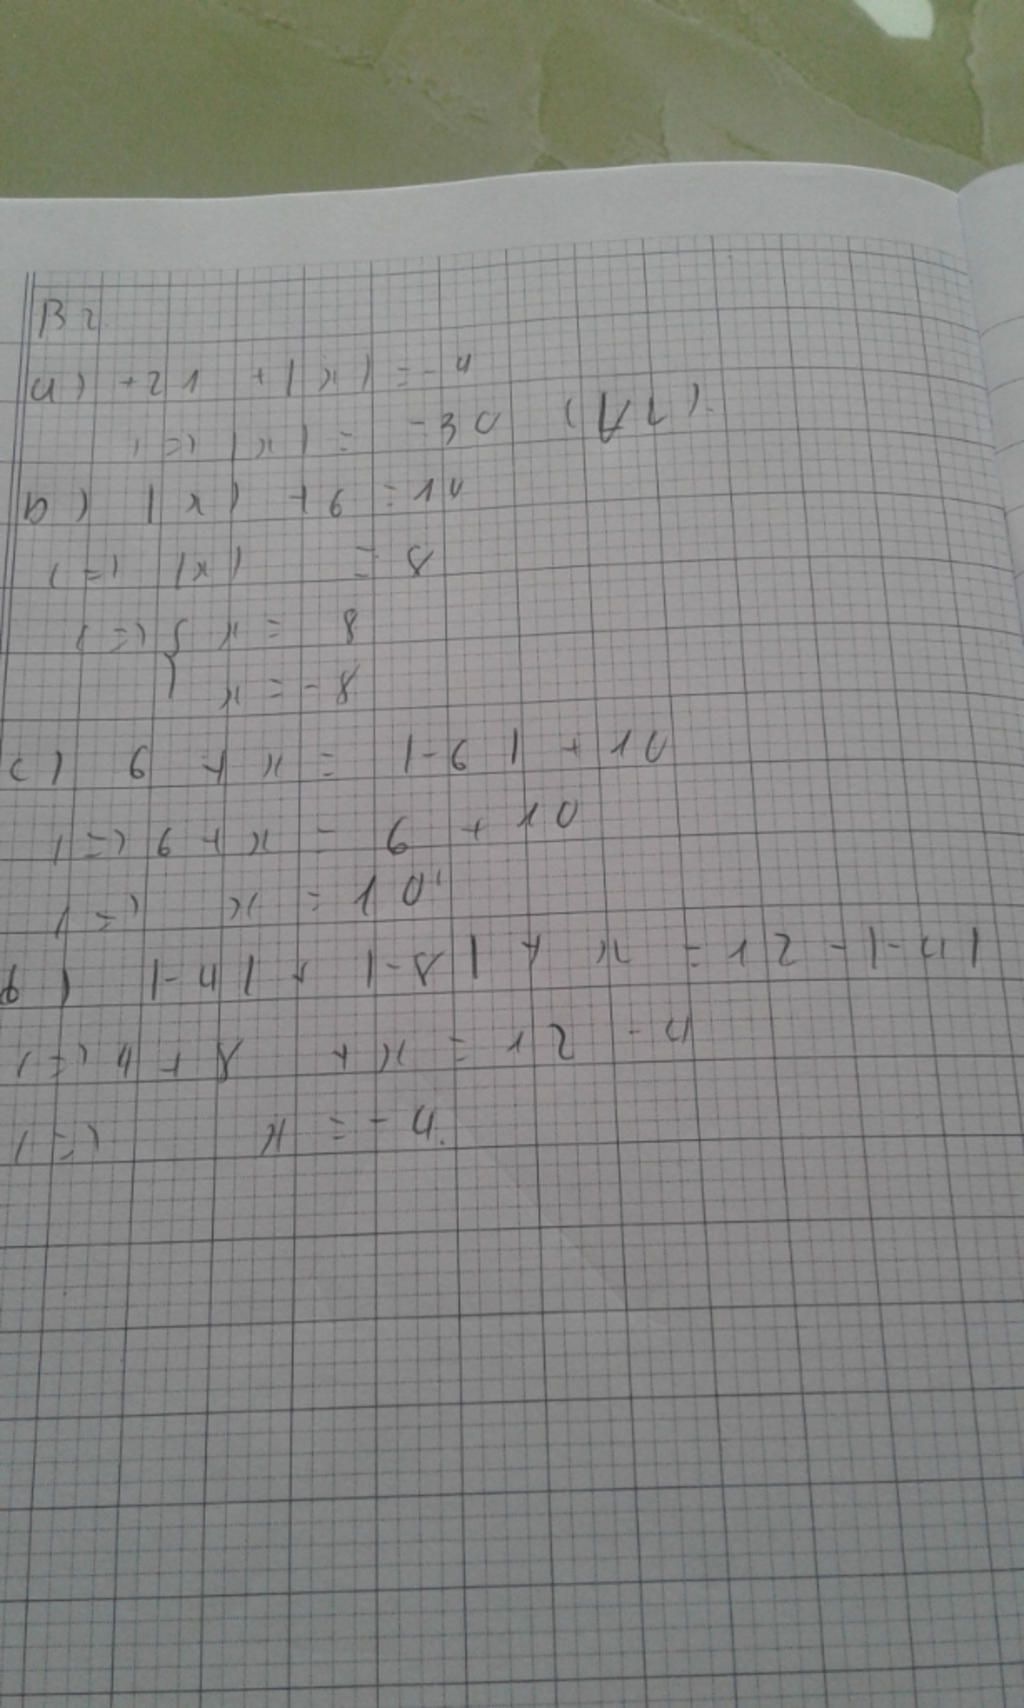 B2
a) +21 +|x| = -4
<=> |x| = -30 (VL).
b) |x| + 6 = 10
<=> |x| = 8
<=> { x = 8
x = -8
c) 6 + x = |-6| + 10
<=> 6 + x = 6 + 10
<=> x = 10
d) |-4| + |-8| + x = 12 - |-4|
<=> 4 + 8 + x = 12 - 4
<=> x = -4.